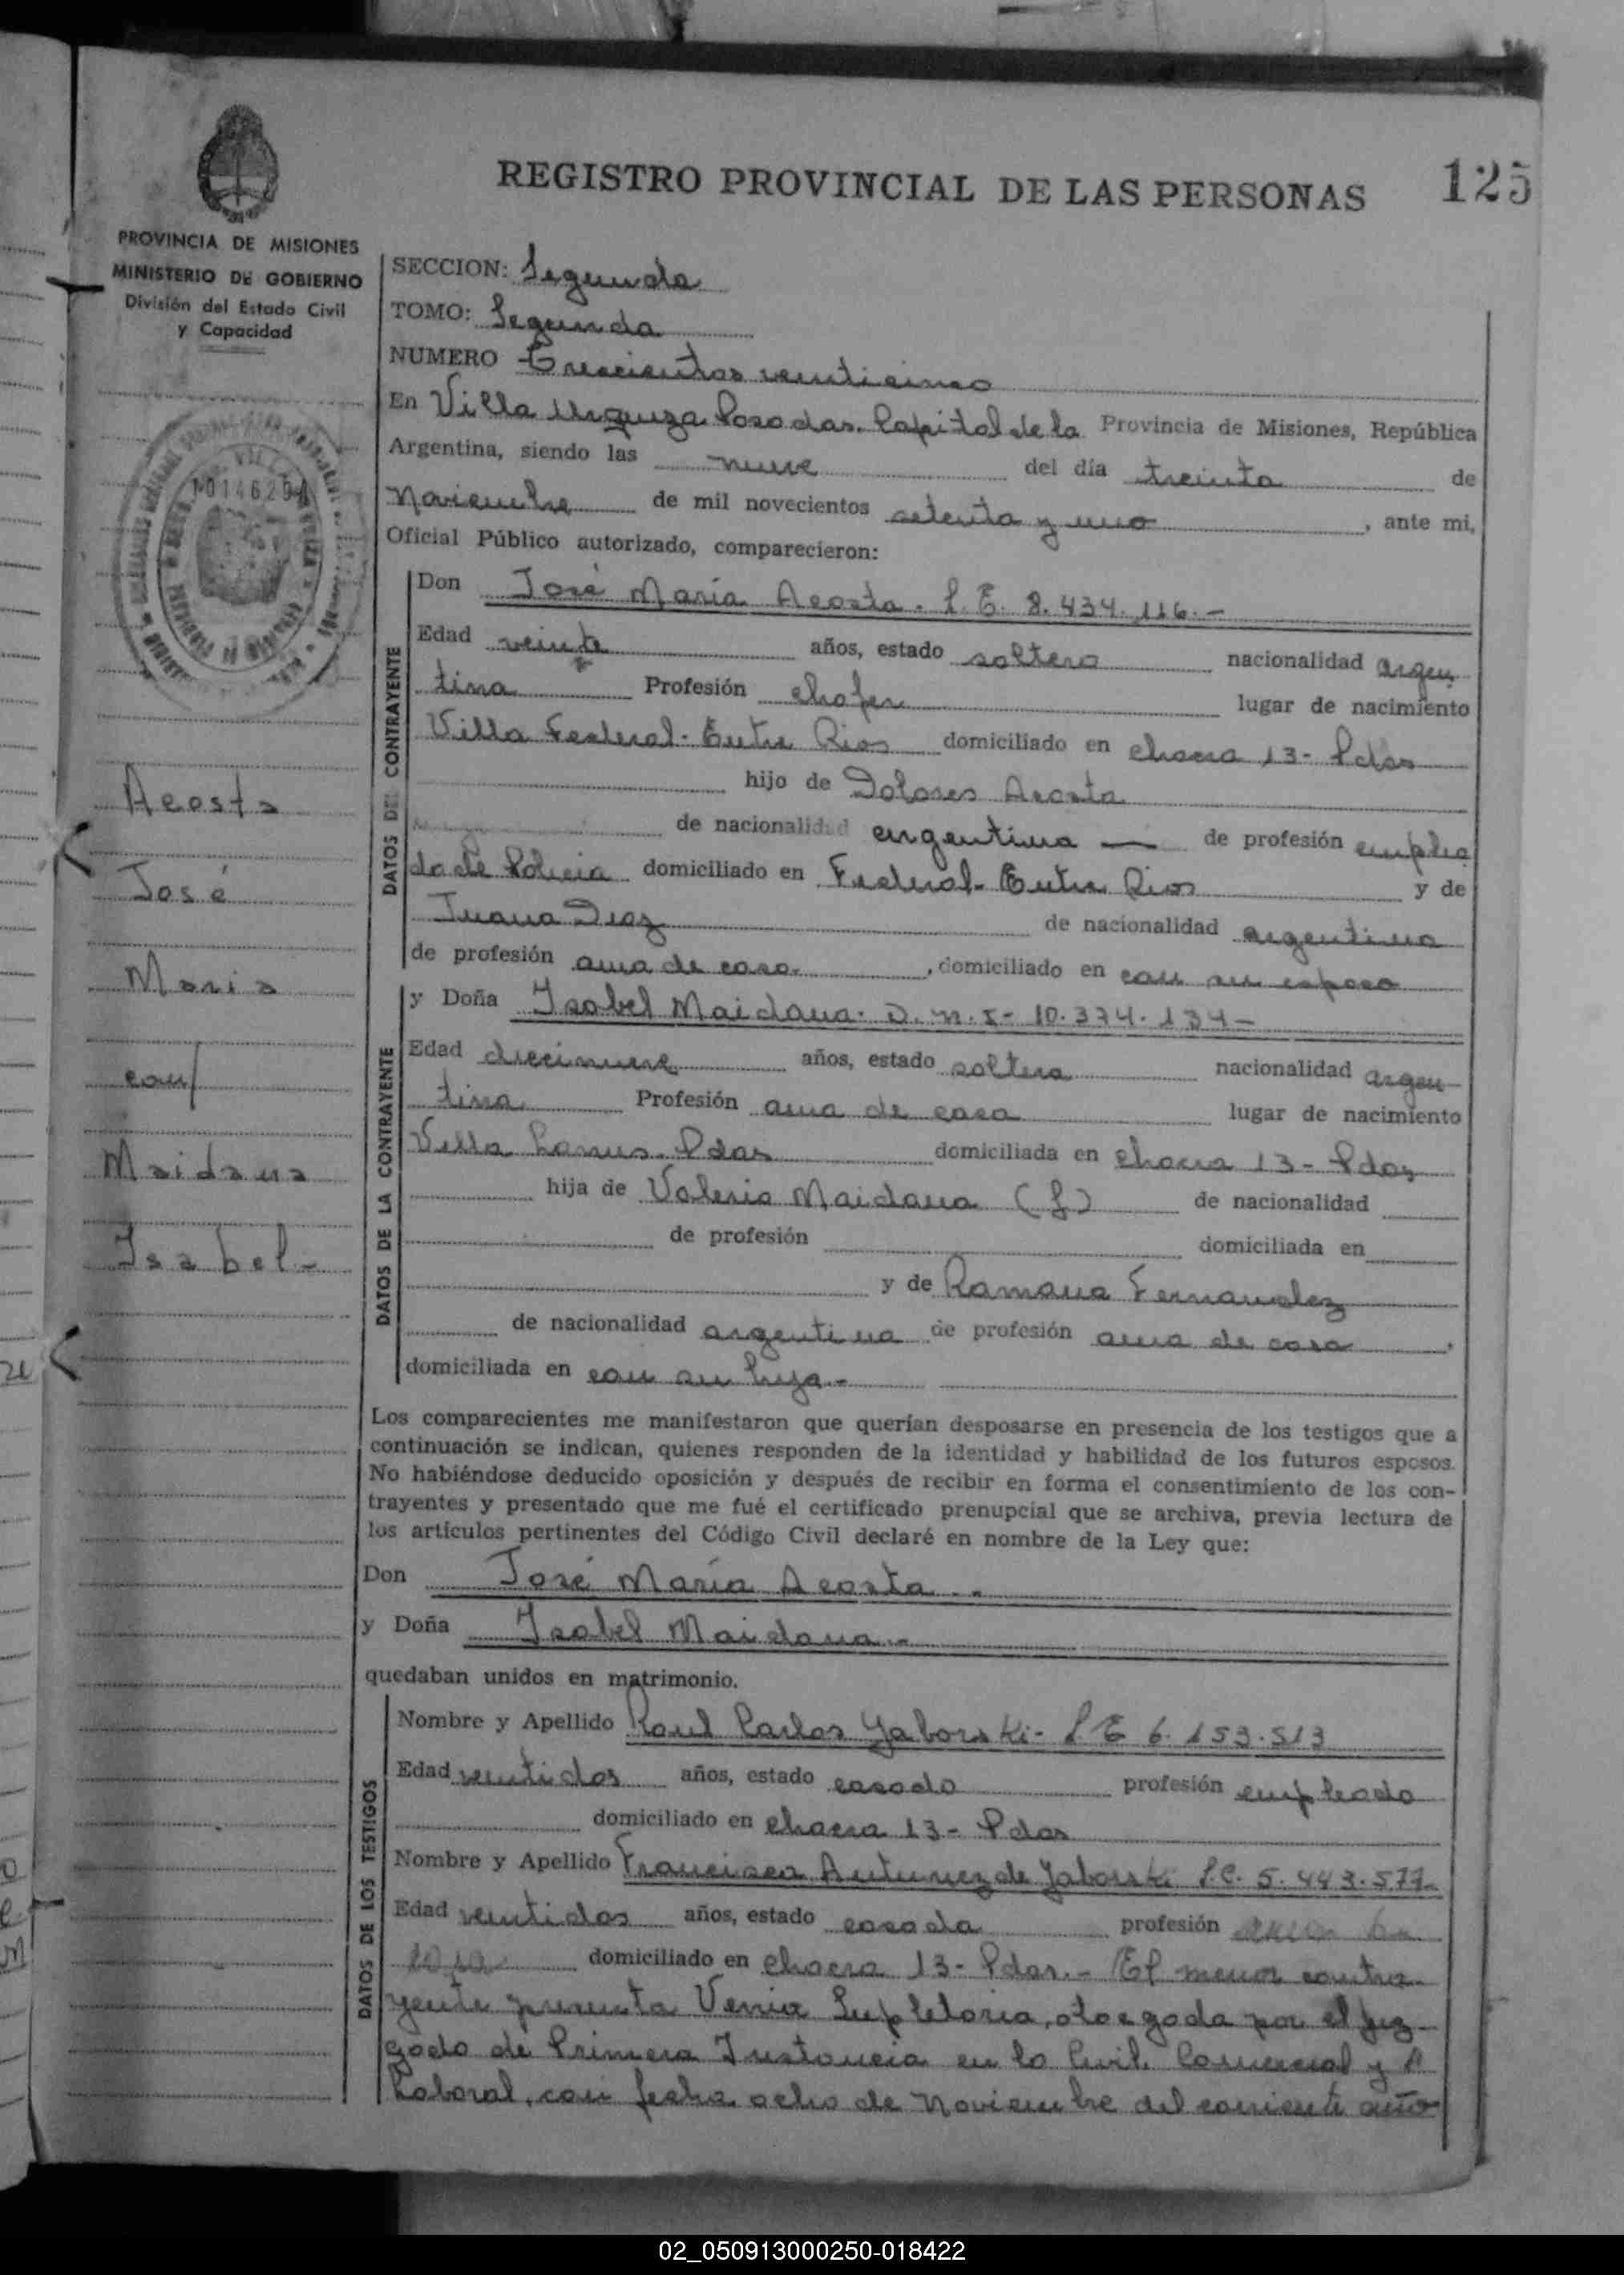 REGISTRO PROVINCIAL DE LAS PERSONAS 125
PROVINCIA DE MISIONES
MINISTERIO DE GOBIERNO
División del Estado Civil
y Capacidad
10146294
Acosta
José
Maria
con/
Maidana
Isabel-
SECCION: Segunda
TOMO: Segunda
NUMERO Trescientos veinticinco
En Villa Urquiza Posadas. Capital de la Provincia de Misiones, República
Argentina, siendo las nueve del día treinta de
Noviembre de mil novecientos setenta y uno, ante mi,
Oficial Público autorizado, comparecieron:
DATOS DEL CONTRAYENTE
Don José María Acosta. L.E. 8.434.116.-
Edad veinte años, estado soltero nacionalidad argen
tina Profesión chofer lugar de nacimiento
Villa Federal- Entre Rios domiciliado en chacra 13- Pdas
hijo de Dolores Acosta
de nacionalidad argentina — de profesión emplea
do de Policia domiciliado en Federal- Entre Rios y de
Juana Diaz de nacionalidad argentina
de profesión ama de casa, domiciliado en con su esposo
DATOS DE LA CONTRAYENTE
y Doña Isabel Maidana. D.N.I- 10.374.134-
Edad diecinueve años, estado soltera nacionalidad argen-
tina Profesión ama de casa lugar de nacimiento
Villa Lanus- Pdas domiciliada en chacra 13- Pdas
hija de Valerio Maidana (f) de nacionalidad
de profesión domiciliada en
y de Ramona Fernandez
de nacionalidad argentina de profesión ama de casa,
domiciliada en con su hija.-
Los comparecientes me manifestaron que querían desposarse en presencia de los testigos que a
continuación se indican, quienes responden de la identidad y habilidad de los futuros esposos.
No habiéndose deducido oposición y después de recibir en forma el consentimiento de los con-
trayentes y presentado que me fué el certificado prenupcial que se archiva, previa lectura de
los artículos pertinentes del Código Civil declaré en nombre de la Ley que:
Don José María Acosta.-
y Doña Isabel Maidana.-
quedaban unidos en matrimonio.
DATOS DE LOS TESTIGOS
Nombre y Apellido Raul Carlos Yaborski- L E 6.153.513
Edad veintidos años, estado casado profesión empleado
domiciliado en chacra 13- Pdas
Nombre y Apellido Francisca Antunez de Yaborski L.C. 5.443.577-
Edad veintidos años, estado casada profesión ama de
casa domiciliado en chacra 13- Pdas.- El menor contra-
yente presenta Venia Supletoria, otorgada por el Juz-
gado de Primera Instancia en lo Civil, Comercial y
Laboral, con fecha ocho de Noviembre del corriente año
02_050913000250-018422